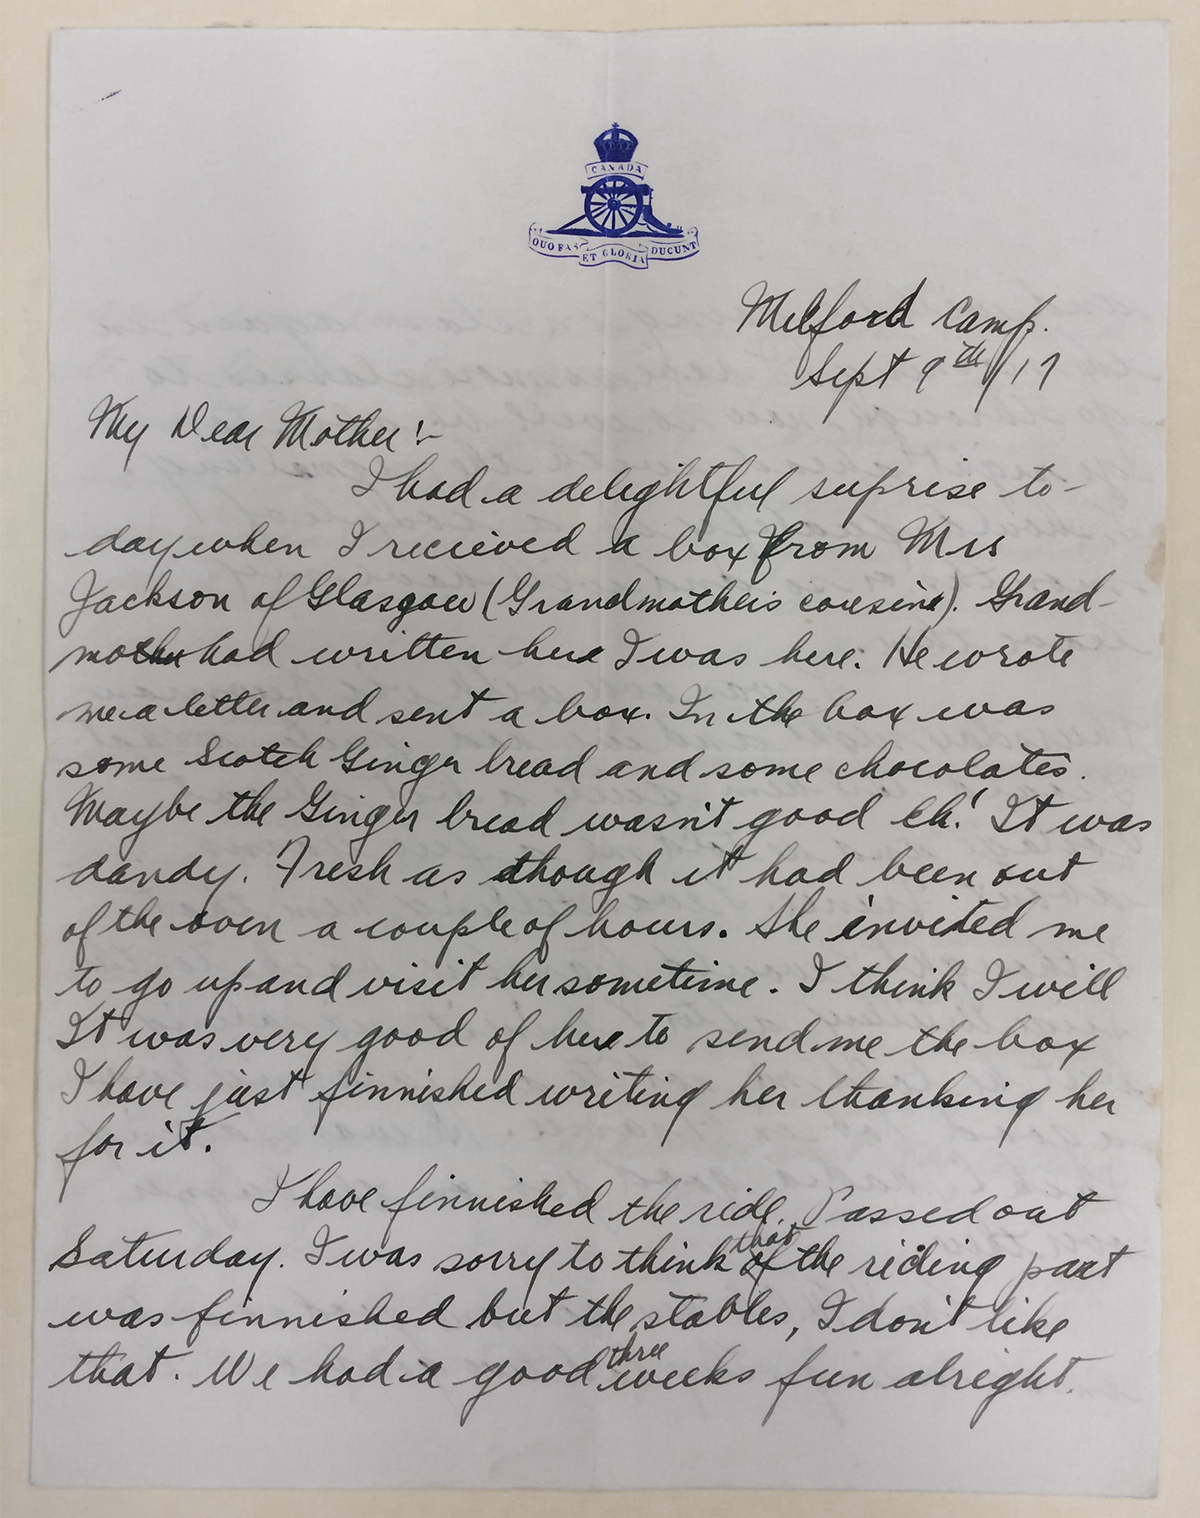 CANADA
QUO FAS ET GLORIA DUCUNT
Milford Camp.
Sept 9th/17
My Dear Mother:-
I had a delightful suprise to-
day when I recieved a box from Mrs
Jackson of Glasgow (Grandmother's cousine). Grand-
mother had written her I was here. He wrote
me a letter and sent a box. In the box was
some Scotch Ginger bread and some chocolates.
Maybe the Ginger bread wasn't good Eh! It was
dandy. Fresh as though it had been out
of the oven a couple of hours. She invited me
to go up and visit her sometime. I think I will
It was very good of her to send me the box
I have just finnished writing her thanking her
for it.
I have finnished the ride. Passed out
Saturday. I was sorry to think that of the riding part
was finnished but the stables, I don't like
that. We had a good three weeks fun alright.